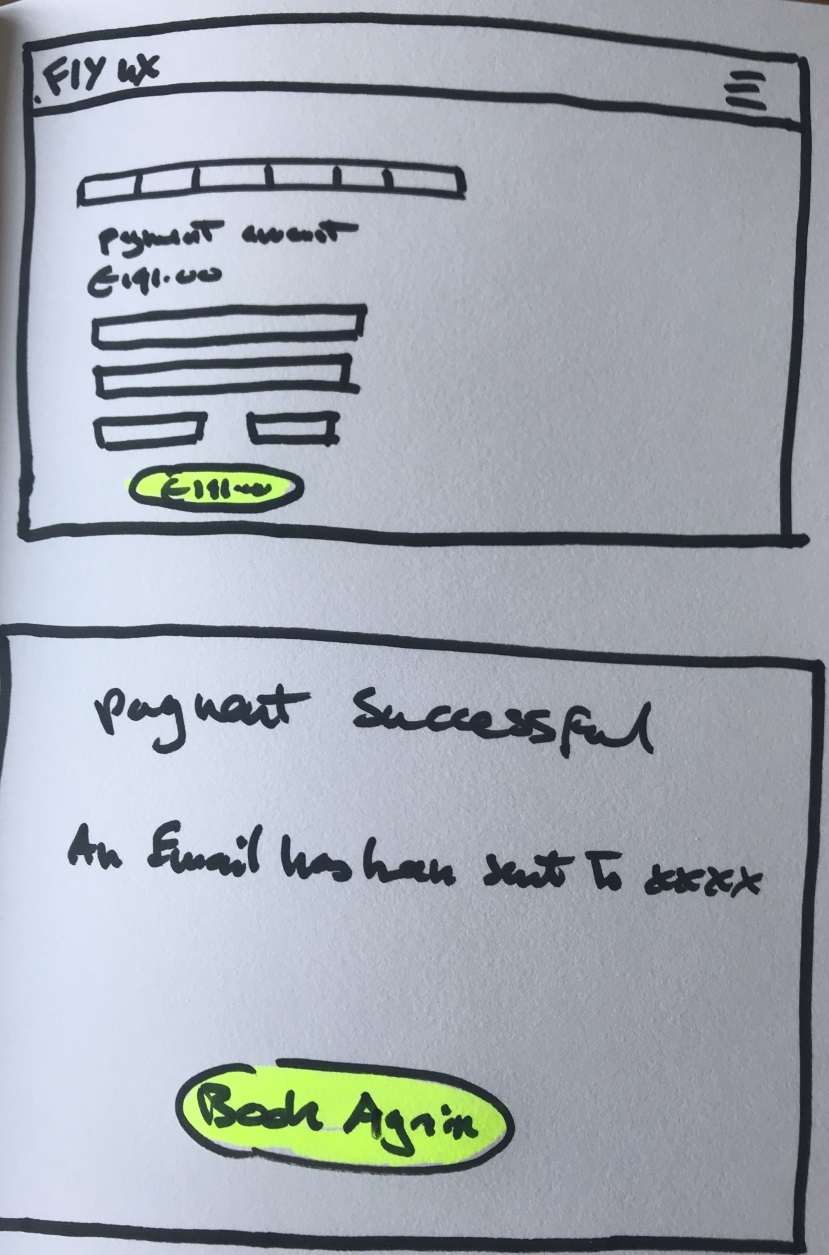 FLY UX
payment amount
€191.00
€191.00
payment Successful
An Email has been sent to xxxx
Book Again